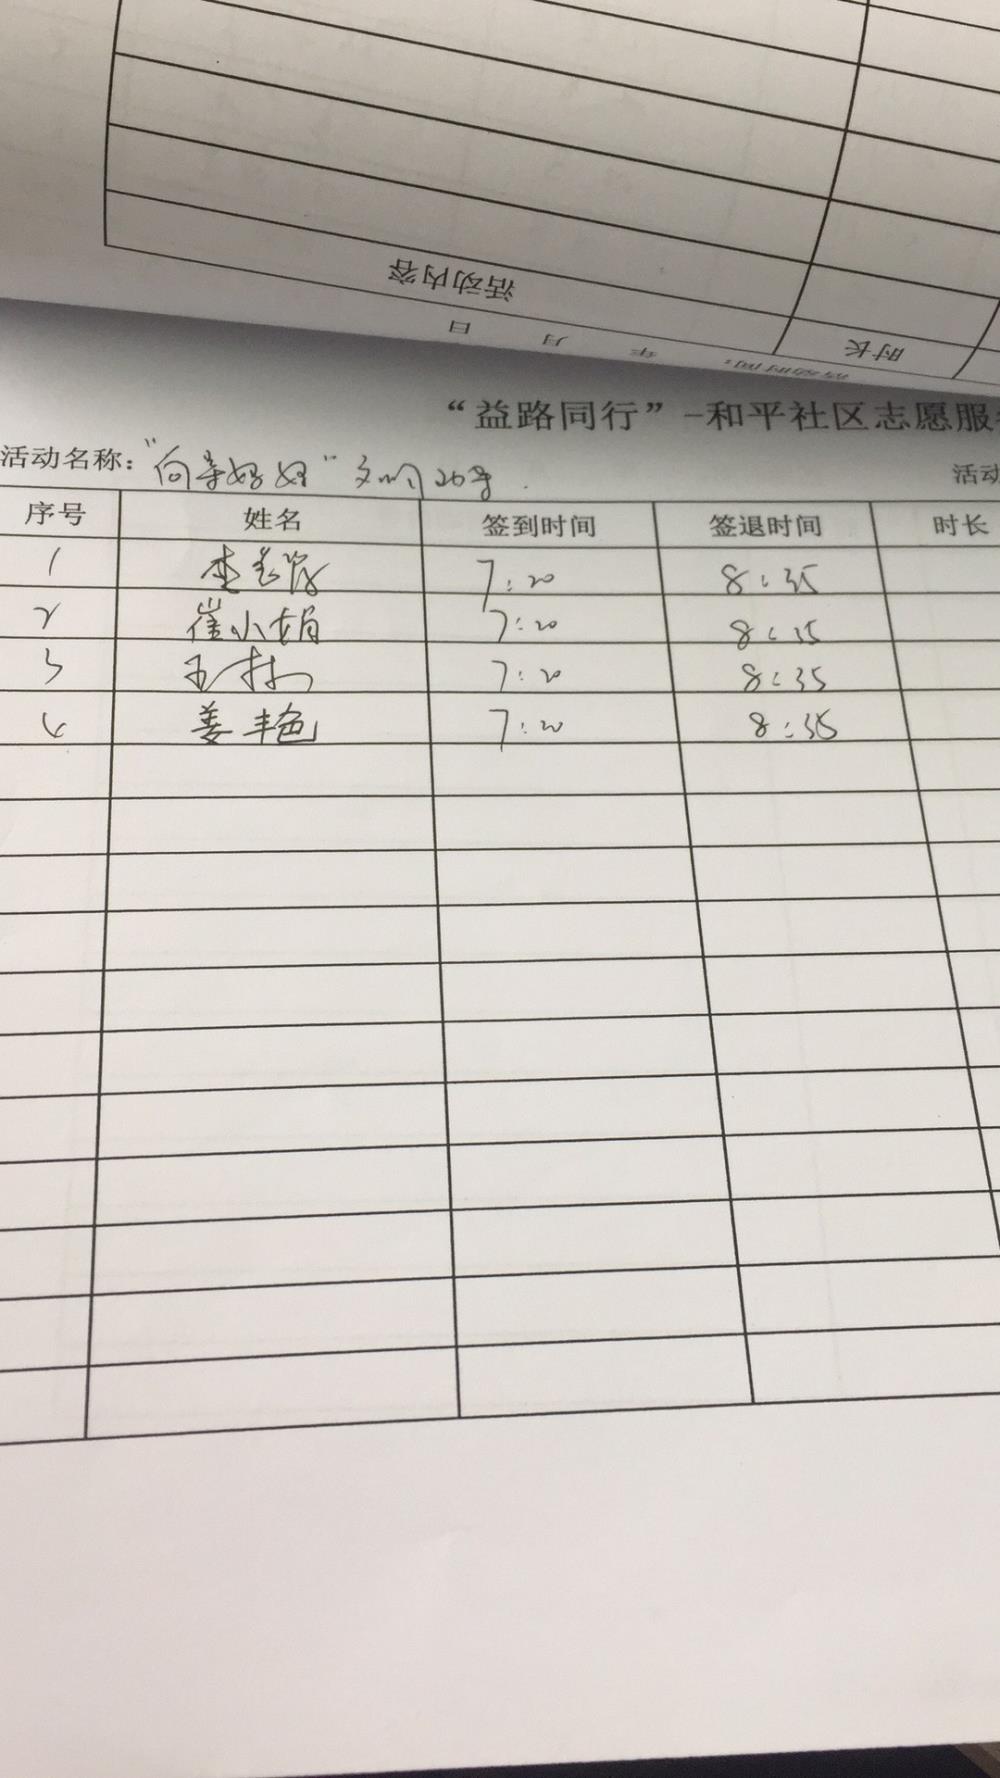 活动内容
时长
活动时间： 年 月 日
“益路同行”-和平社区志愿服
活动名称： 活动
序号 姓名 签到时间 签退时间 时长
1 7:20 8:35
2 崔小娟 7:20 8:35
3 王林 7:20 8:35
4 姜丰色 7:20 8:35